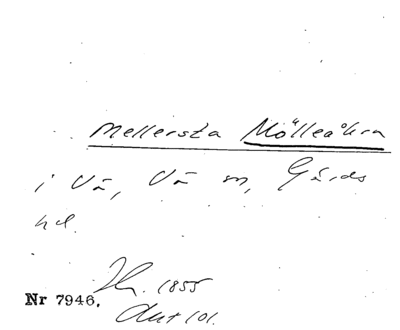 Mellersta Mölleåkra
i Vä, Vä sn, Gärds
hd.
1855
Nr 7946.
Akt 101.